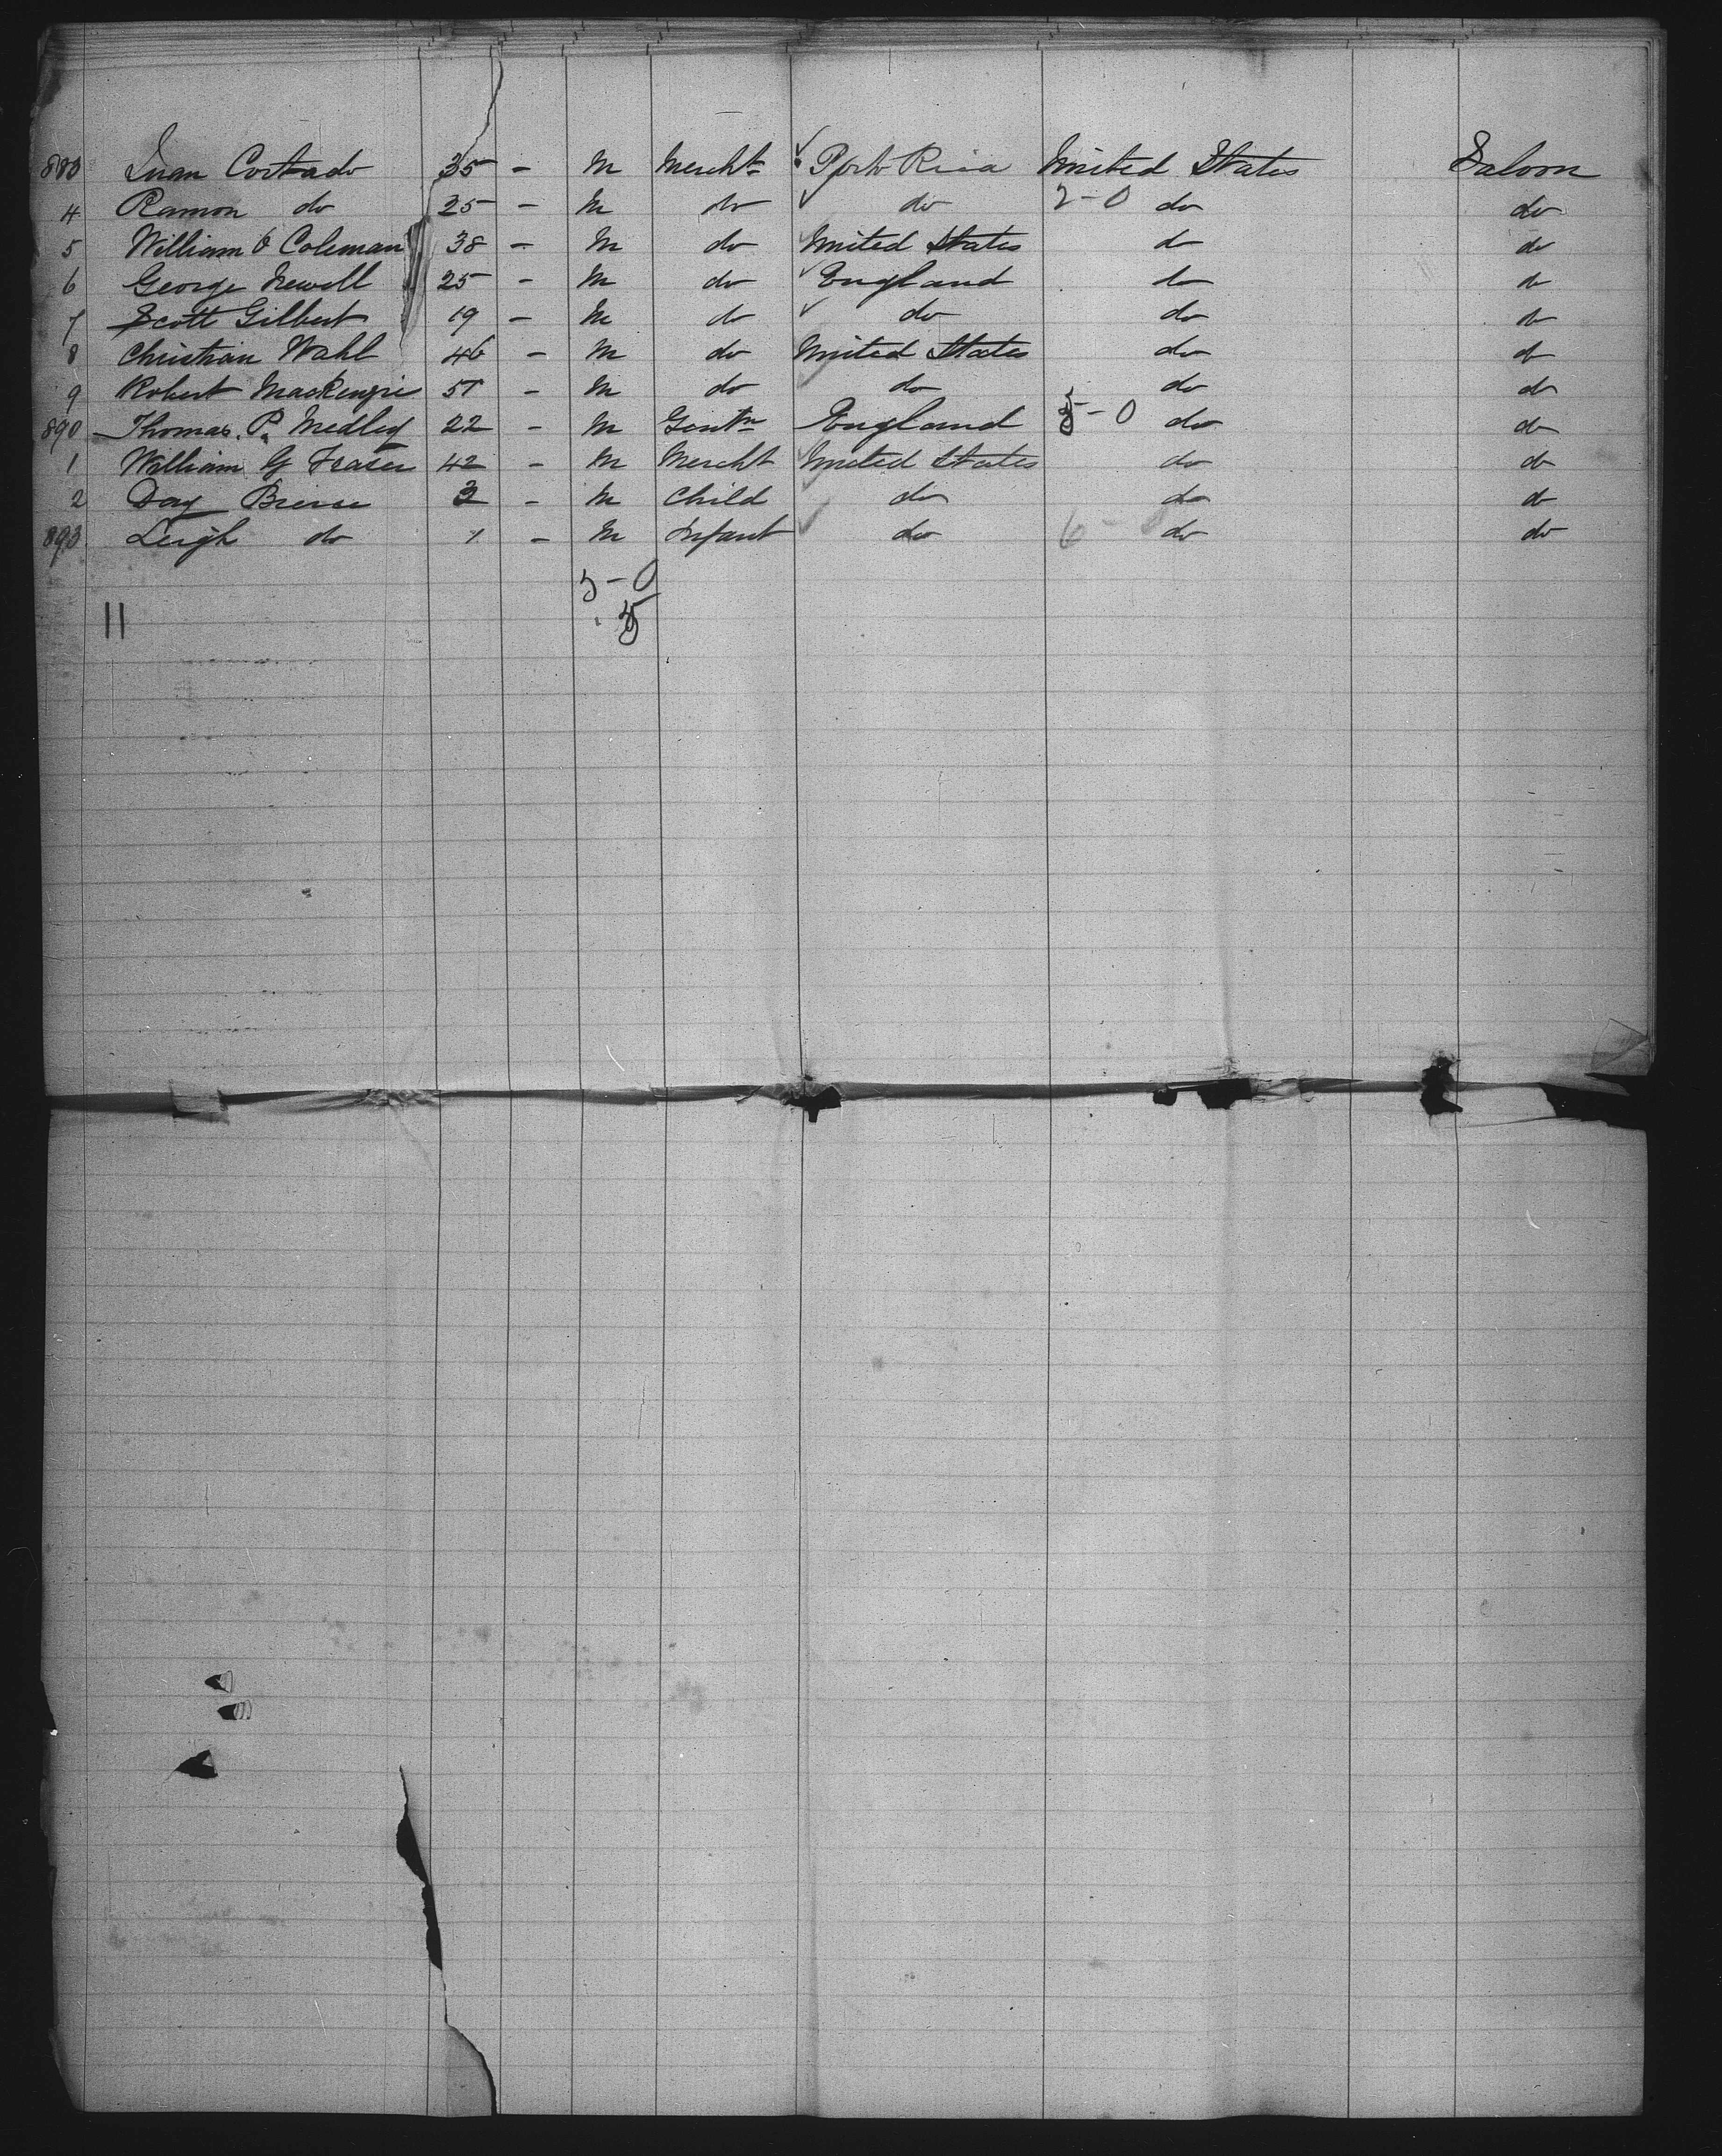 883 Juan Cortado 35 - M Mercht Porto Rica United States Saloon
4 Ramon do 25 - M do do 2-0 do do
5 William O Coleman 38 - M do United States do do
6 George Newell 25 - M do England do do
7 Scott Gilbert 19 - M do do do do
8 Christian Wahl 46 - M do United States do do
9 Robert MacKenzie 51 - M do do do do
890 Thomas P. Medley 22 - M Gentn England 3-0 do do
1 William G Fraser 42 - M Mercht United States do do
2 Day Bierse 3 - M Child do do do
893 Leigh do 1 - M Infant do 6-0 do do
5-0
11